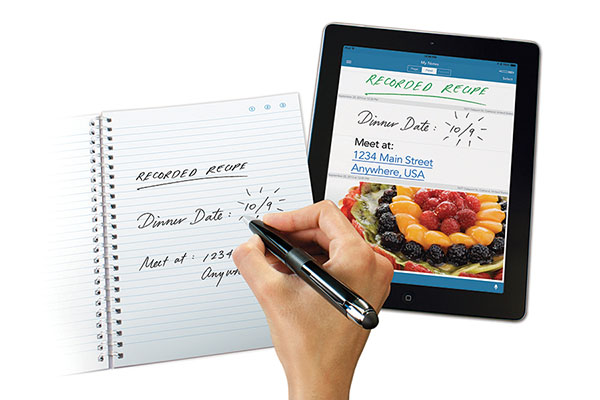 RECORDED RECIPE
Dinner Date : 10/9
Meet at : 1234
Anywh
My Notes
RECORDED RECIPE
Dinner Date : 10/9
Meet at:
1234 Main Street
Anywhere, USA